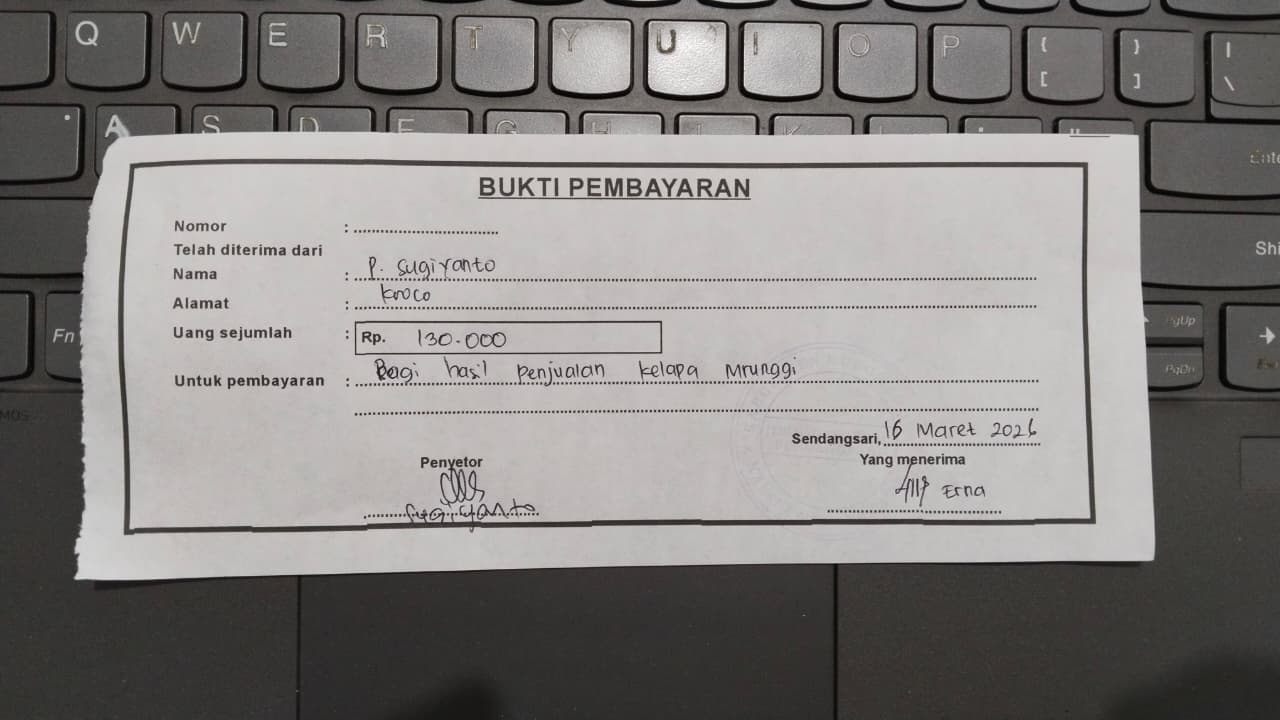 Q W E R T Y U I O P { [ } ] | \
A S D F G H J K L : "
Enter
Shi
Fn
PgUp
PgDn
BUKTI PEMBAYARAN
Nomor : ........................................
Telah diterima dari
Nama : P. Sugiyanto
Alamat : Kroco
Uang sejumlah : Rp. 130.000
Untuk pembayaran : Bagi hasil penjualan kelapa Mrunggi
Sendangsari, 16 Maret 2026
Penyetor Yang menerima
Sugiyanto Erna